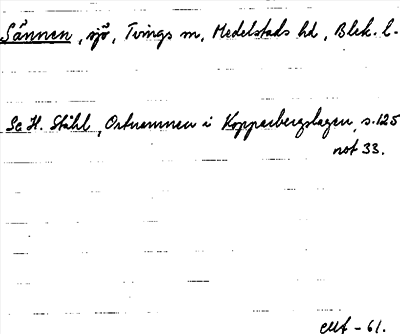 Sännen, sjö, Tvings sn, Medelstads hd, Blek. l.
Se H. Ståhl, Ortnamnen i Kopparbergslagen, s. 125
not 33.
-61.